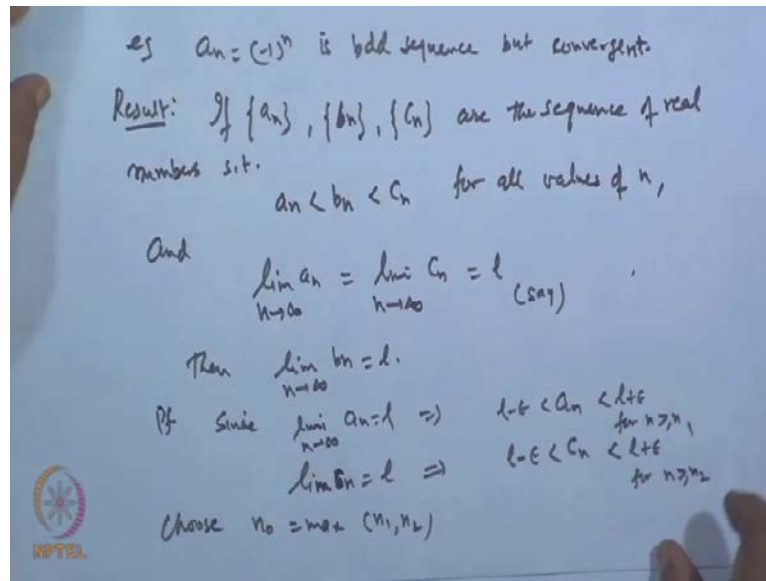 eg an = (-1)^n is bdd sequence but convergent.
Result: If {an}, {bn}, {Cn} are the sequence of real
numbers s.t.
an < bn < Cn for all values of n,
And
lim n→∞ an = lim n→∞ Cn = l (say)
Then lim n→∞ bn = l.
Pf Since lim n→∞ an = l ⇒ l-ϵ < an < l+ϵ for n ≥ n1
lim Cn = l ⇒ l-ϵ < Cn < l+ϵ for n ≥ n2
Choose n0 = max (n1, n2)
NPTEL